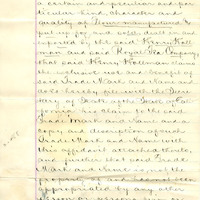 a certain and peculiar and par-
ticular kind, character and
quality of Flour manufactured &
put up for and sold, dealt in and
exported by the said Henry Holl-
man and said Royal Tea Company
that said Henry Hollman claims
the exclusive use and benefit of
said Trade Mark and Name and
does hereby file with the Secre-
tary of State of the State of Cal-
ifornia his claim to the said
Trade Mark and Name and a
copy and description of such
Trade Mark and Name with
this affidavit attached thereto,
and further that said Trade
Mark and Name is not the
property of and has not been
appropriated by any other
person or persons